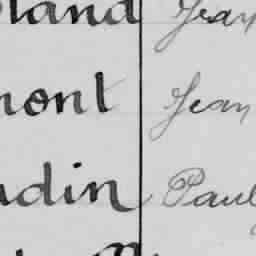 land Jean
mont Jean
udin Paul